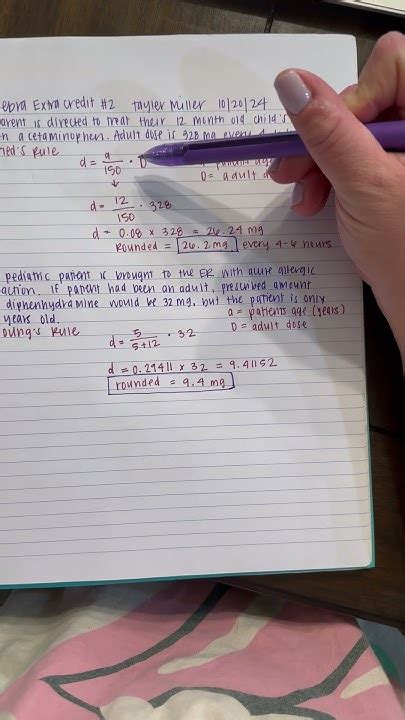 ebra Extra Credit #2 Tayler Miller 10/20/24
arent is directed to treat their 12 month old child's
n acetaminophen. Adult dose is 328 mg every
ied's Rule
d = a/150 · D
D = adult do
d = 12/150 · 328
d = 0.08 x 328 = 26.24 mg
rounded = 26.2 mg every 4-6 hours
pediatric patient is brought to the ER with acute allergic
action. If patient had been an adult, prescribed amount
diphenhydramine would be 32 mg, but the patient is only
years old.
a = patients age (years)
oung's Rule
d = 5/5+12 · 32
D = adult dose
d = 0.29411 x 32 = 9.41152
rounded = 9.4 mg